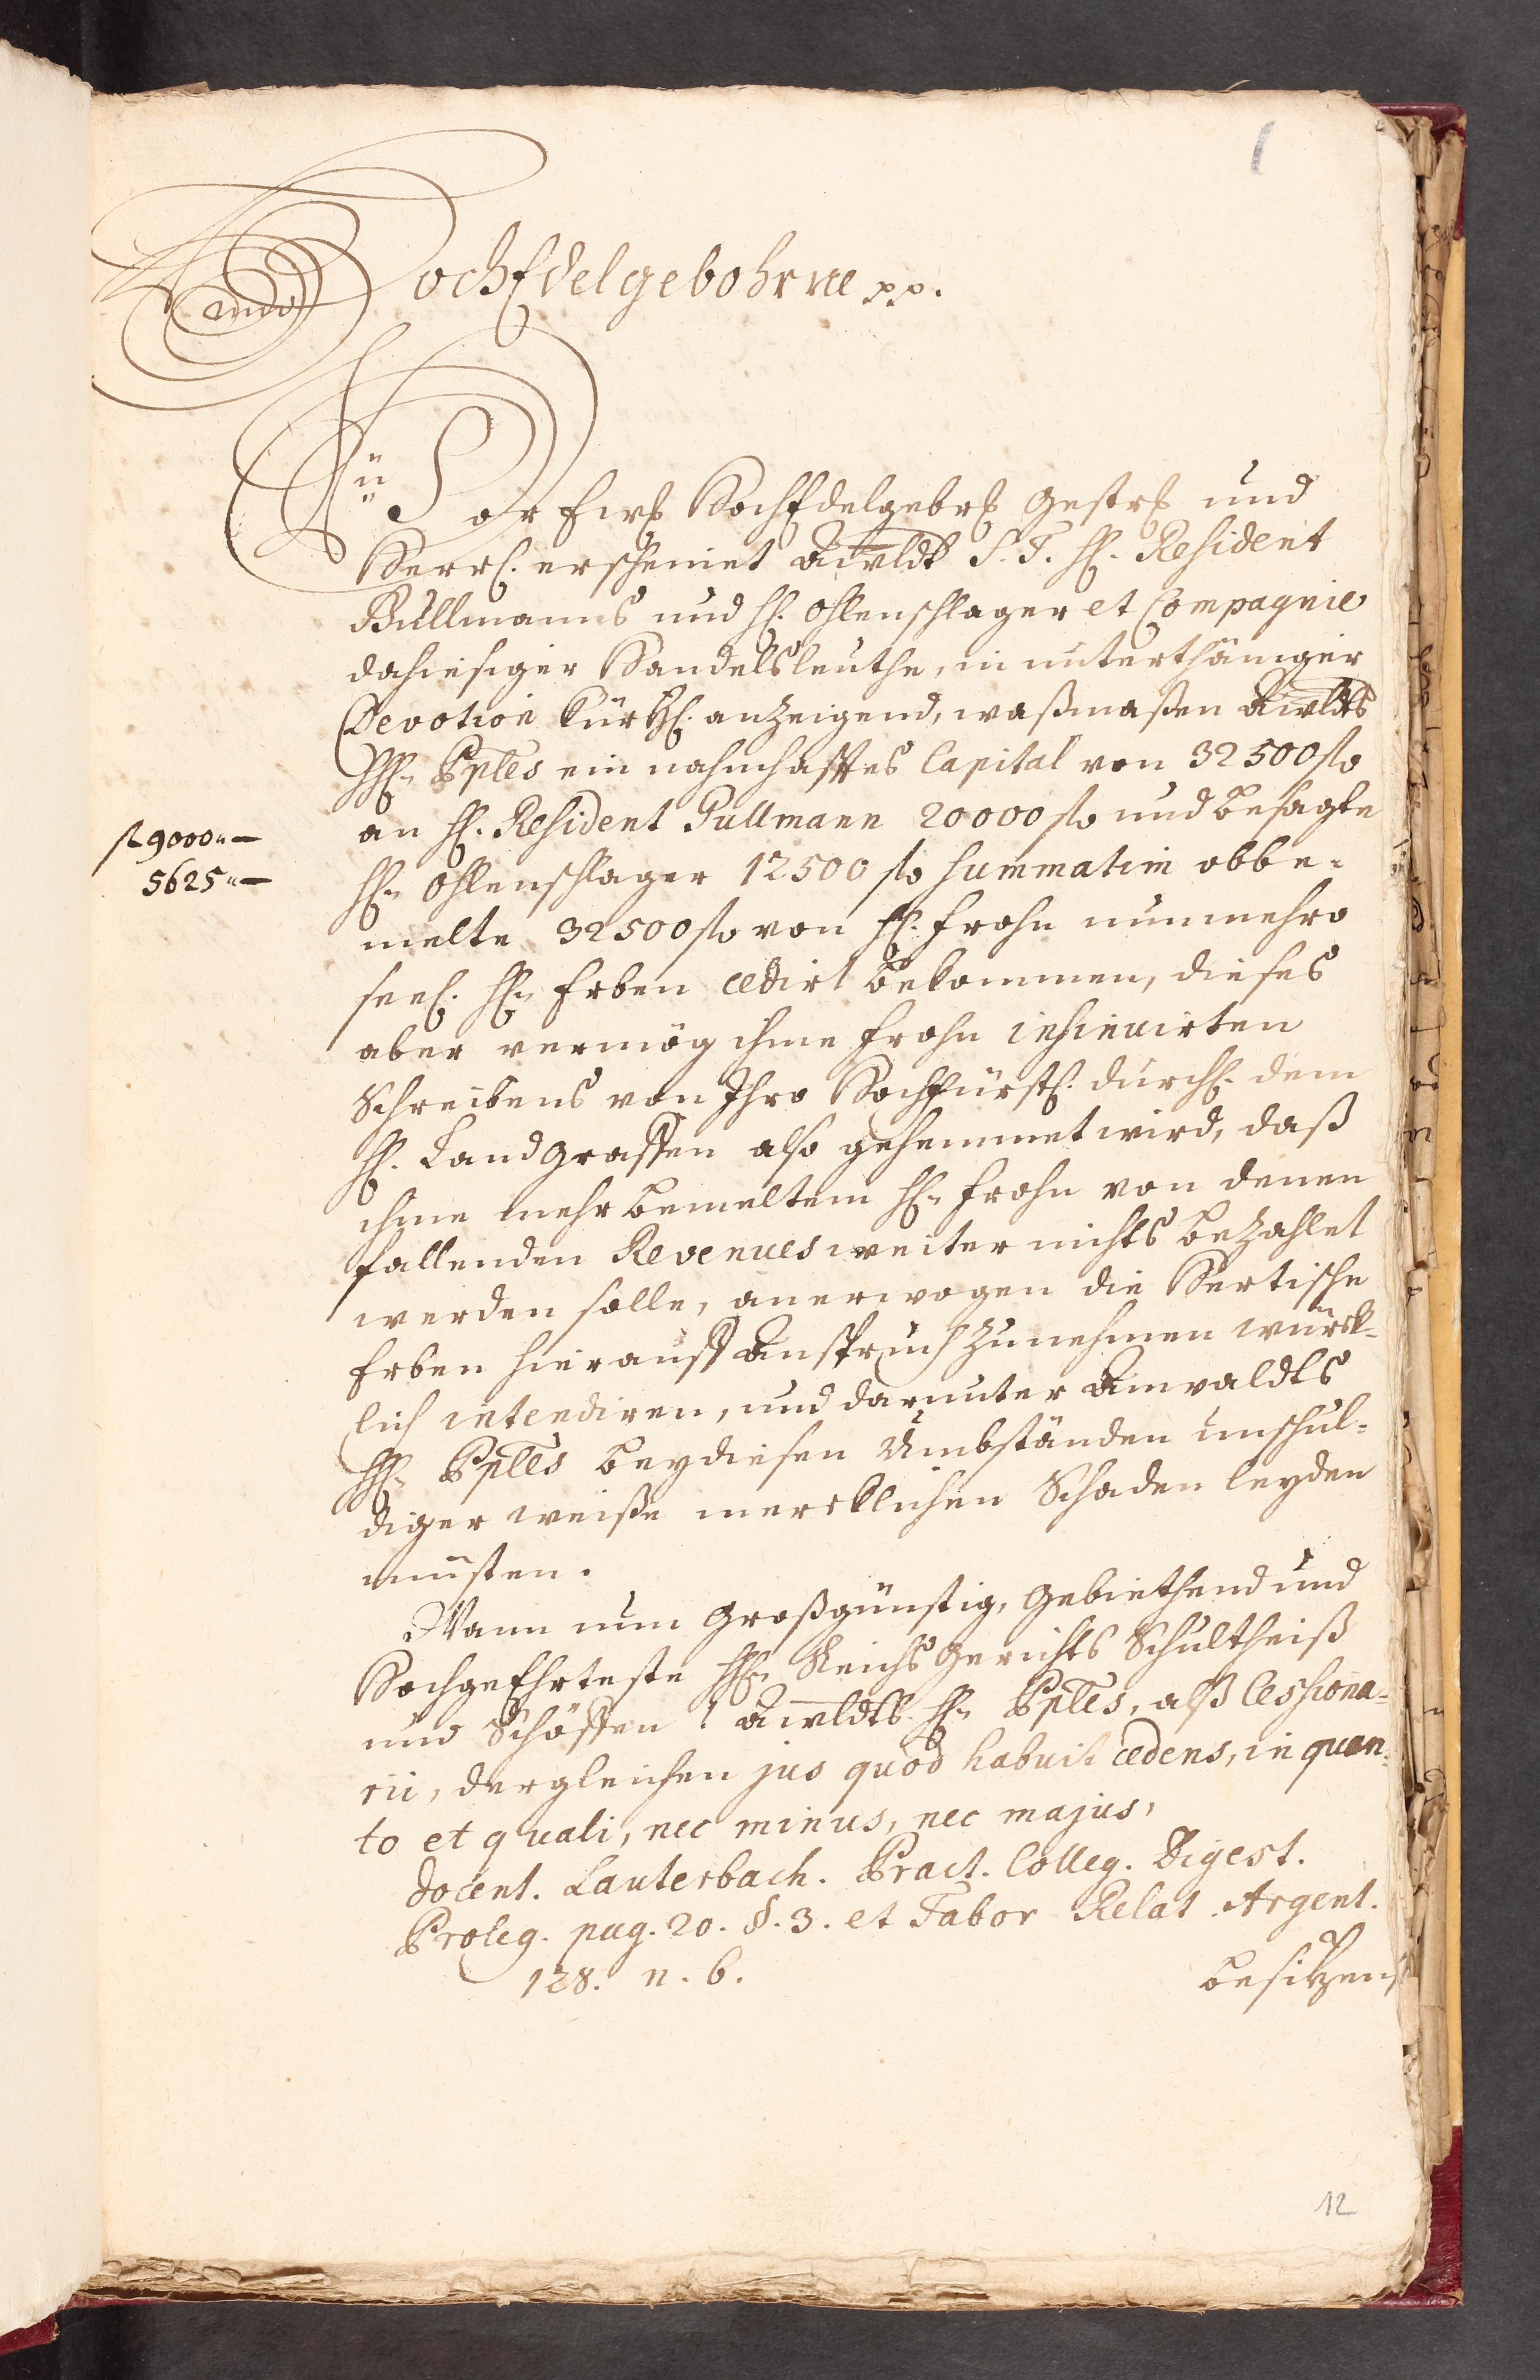 1
HochEdelgebohrne pp.
Vor Ewr HochEdelgebr Gestr und
Herrl. erscheinet Anwldt S. T. H. Resident
Bullmanns und H. Ohlenschlager et Compagnie
dahiesiger Handelsleuthe, in unterthäniger
Devotion kürtzl. anzeigend, waßmaßen Anwldts
HH. Pples ein nahmhafftes Capital von 32500 fl
an H. Resident Pullmann 20000 fl und besagte
fl 9000 " —
5625 " —
HH. Ohlenschlager 12500 fl summatim obbe-
melte 32500 fl von H. Frohn nunmehro
seel. HH. Erben cedirt bekommen, dieses
aber vermög ihme Frohn insinuirten
Schreibens von Ihro Hochfürstl. Durchl. dem
H. Landgraffen also gehemmet wird, daß
ihme mehr bemeltem H. Frohn von denen
fallenden Revenues weiter nichts bezahlet
werden solle, anerwogen die Hertische
Erben hierauff Anspruch zunehmen würck-
lich intendiren, und darunter Anwaldts
HH. Pples bey diesen Umbständen unschul-
diger weiße mercklichen Schaden leyden
müsten.
Wann nun Großgünstig, Gebiethend und
HochgeEhrteste HH. Reichs Gerichts Schultheiß
und Schöffen! Anwldts HH. Pples, alß Cessiona-
rii, dergleichen jus quod habuit cedens, in quan-
to et quali, nec minus, nec majus,
docent. Lauterbach. Pract. Colleg. Digest.
Proleg. pag. 20. §. 3. et Tabor Relat. Argent.
128. n. 6.
besitzen,
12